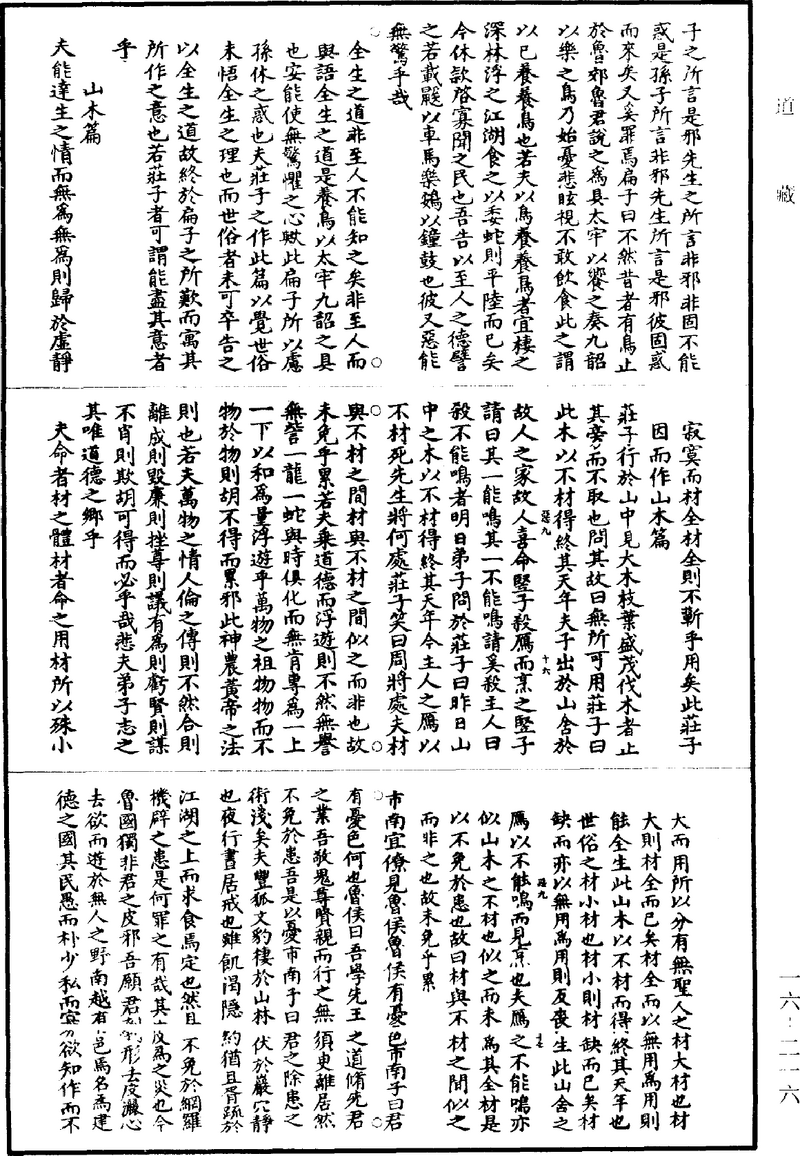 道藏
子之所言是邪先生之所言非邪非固不能
惑是孫子所言非邪先生所言是邪彼固惑
而來矣又奚罪焉扁子曰不然昔者有鳥止
於魯郊魯君說之為具太牢以饗之奏九韶
以樂之鳥乃始憂悲眩視不敢飲食此之謂
以己養養鳥也若夫以鳥養養鳥者宜棲之
深林浮之江湖食之以委蛇則平陸而已矣
今休款啓寡聞之民也吾告以至人之德譬
之若載鼷以車馬樂鴳以鐘鼓也彼又惡能
無驚乎哉
全生之道非至人不能知之矣非至人而
與語全生之道是養鳥以太牢九韶之具
也安能使無驚懼之心歟此扁子所以慮
孫休之惑也夫莊子之作此篇以覺世俗
未悟全生之理也而世俗者未可卒告之
以全生之道故終於扁子之所歎而寓其
所作之意也若莊子者可謂能盡其意者
乎
山木篇
夫能達生之情而無為無為則歸於虛靜
寂寞而材全材全則不蘄乎用矣此莊子
因而作山木篇
莊子行於山中見大木枝葉盛茂伐木者止
其旁而不取也問其故曰無所可用莊子曰
此木以不材得終其天年夫子出於山舍於
故人之家故人喜命豎子殺鴈而烹之豎子
請曰其一能鳴其一不能鳴請奚殺主人曰
殺不能鳴者明日弟子問於莊子曰昨日山
中之木以不材得終其天年今主人之鴈以
不材死先生將何處莊子笑曰周將處夫材
與不材之間材與不材之間似之而非也故
未免乎累若夫乘道德而浮遊則不然無譽
無訾一龍一蛇與時俱化而無肯專為一上
一下以和為量浮遊乎萬物之祖物物而不
物於物則胡可得而累邪此神農黃帝之法
則也若夫萬物之情人倫之傳則不然合則
離成則毀廉則挫尊則議有為則虧賢則謀
不肖則欺胡可得而必乎哉悲夫弟子志之
其唯道德之鄉乎
夫命者材之體材者命之用材所以殊小
大而用所以分有無聖人之材大材也材
大則材全而已矣材全而以無用為用則
能全生此山木以不材而得終其天年也
世俗之材小材也材小則材缺而已矣材
缺而亦以無用為用則反喪生此山舍之
鴈以不能鳴而見烹也夫鴈之不能鳴亦
似山木之不材也似之而未為其全材是
以不免於患也故曰材與不材之間似之
而非之也故未免乎累
市南宜僚見魯侯魯侯有憂色市南子曰君
有憂色何也魯侯曰吾學先王之道脩先君
之業吾敬鬼尊賢親而行之無須臾離居然
不免於患吾是以憂市南子曰君之除患之
術淺矣夫豐狐文豹棲於山林伏於巖穴靜
也夜行晝居戒也雖飢渴隱約猶且胥疏於
江湖之上而求食焉定也然且不免於網羅
機辟之患是何罪之有哉其皮為之災也今
魯國獨非君之皮邪吾願君刳形去皮灑心
去欲而遊於無人之野南越有邑焉名為建
德之國其民愚而朴少私而寡欲知作而不
一六-二一六